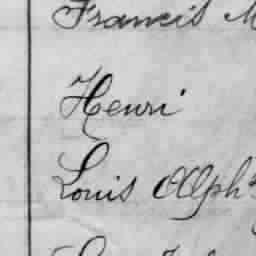 Francis M
Henri
Louis Alph